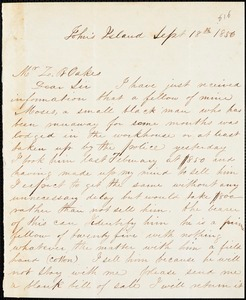 416
John's Island Sept 18th 1856
Mr Z. B Oakes
Dear Sir I have just received
information that a fellow of mine
Moses, a small black man who has
been runaway for some months was
lodged in the workhouse or at least
taken up by the police yesterday
I took him last February at $850 and
having made up my mind to sell him
I expect to get the same without any
unnecessary delay but would take
rather than not sell him. The bearer
of this can identify him he is a
fellow of twenty five with nothing
whatever the matter with him a field
hand (cotton) I sell him because he will
not stay with me please send me
a blank bill of sale I will return it